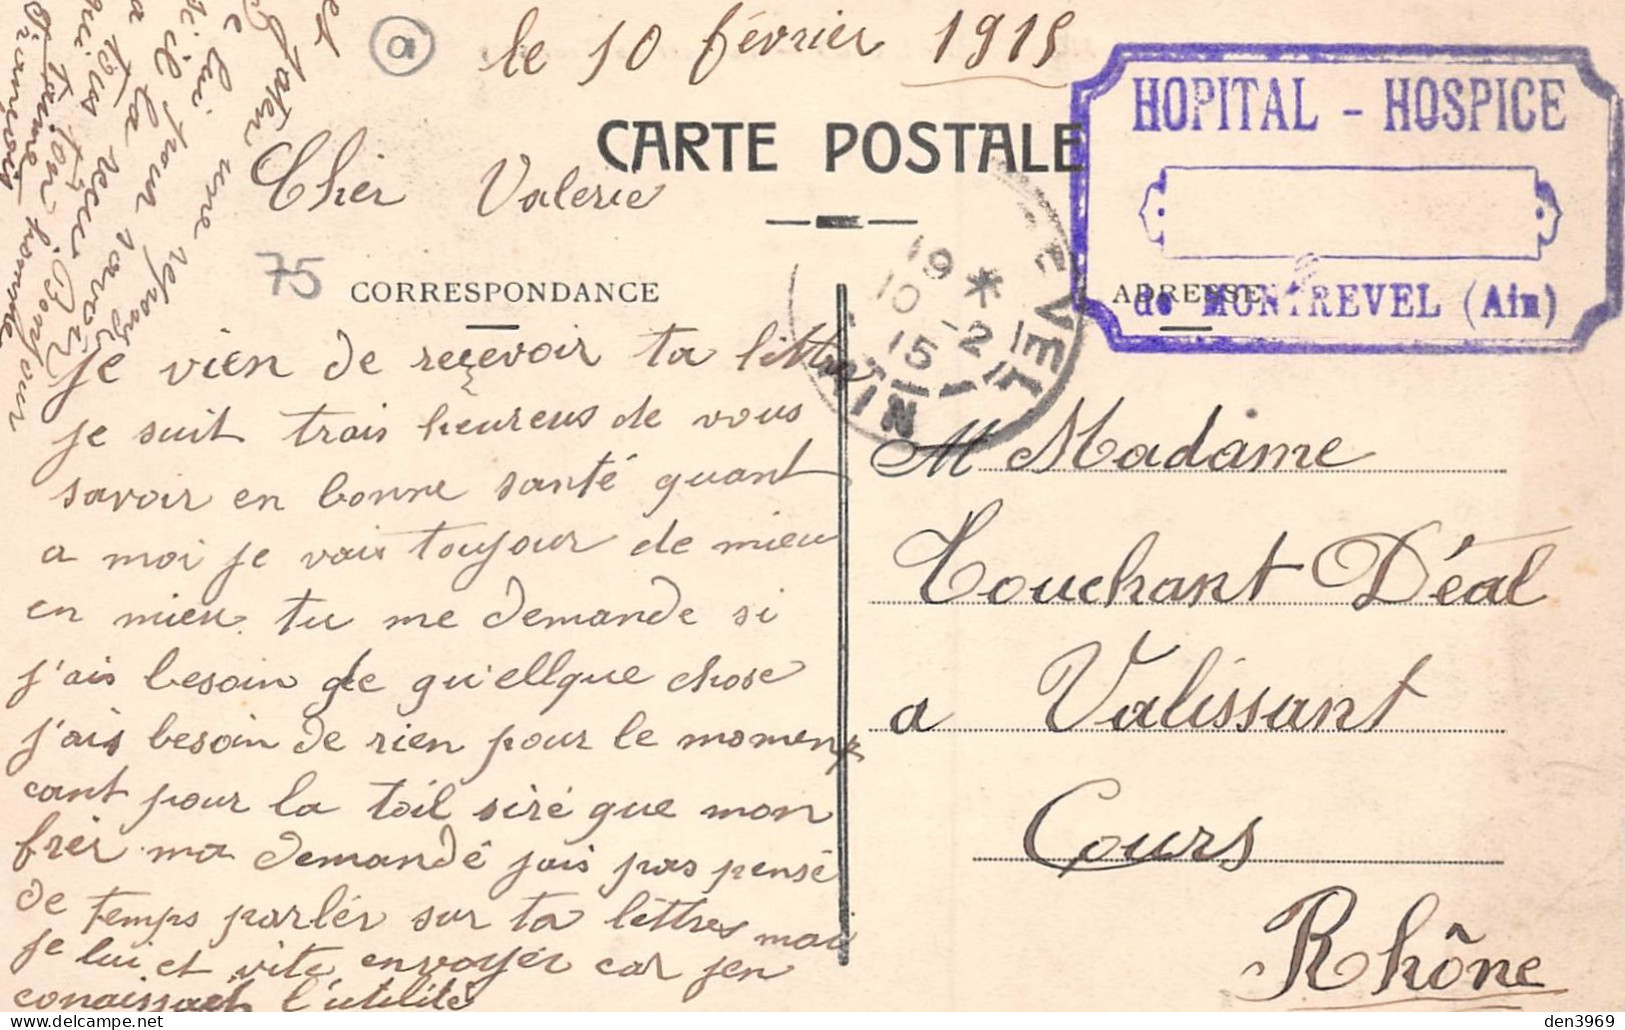 a
le 10 février 1915
CARTE POSTALE
HOPITAL - HOSPICE
de MONTREVEL (Ain)
Cher Valerie
75
CORRESPONDANCE
ADRESSE
19 *
10 - 2
15
EVEL
AIN
je vien de recevoir ta lettre
je suit trais heureus de vous
savoir en bonne santé quant
a moi je vais toujour de mieu
en mieu. tu me demande si
j'ais besoin de qu'ellque chose
j'ais besoin de rien pour le moment
cant pour la toil siré que mon
frer ma demandé jais pas pensé
de temps parlér sur ta lettres mai
je lui et vite envoyér car jen
conaissait l'utilité
M Madame
Touchant Déal
a Valissant
Cours
Rhône
et
e lui une reponse
sil pour savoir
a la recu
Bonjour
François
den3969